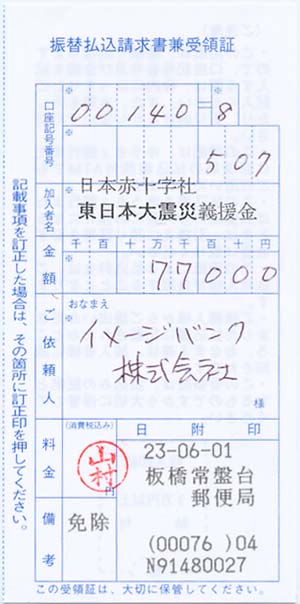 振替払込請求書兼受領証
口座記号番号
00140=8
507
加入者名
日本赤十字社
東日本大震災義援金
金額
千百十万千百十円
77000
ご依頼人
おなまえ
イメージバンク
株式会社
様
料金
(消費税込み)
山村
円
日附印
23-06-01
板橋常盤台
郵便局
(00076 )04
N91480027
備考
免除
記載事項を訂正した場合は、その箇所に訂正印を押してください。
この受領証は、大切に保管してください。